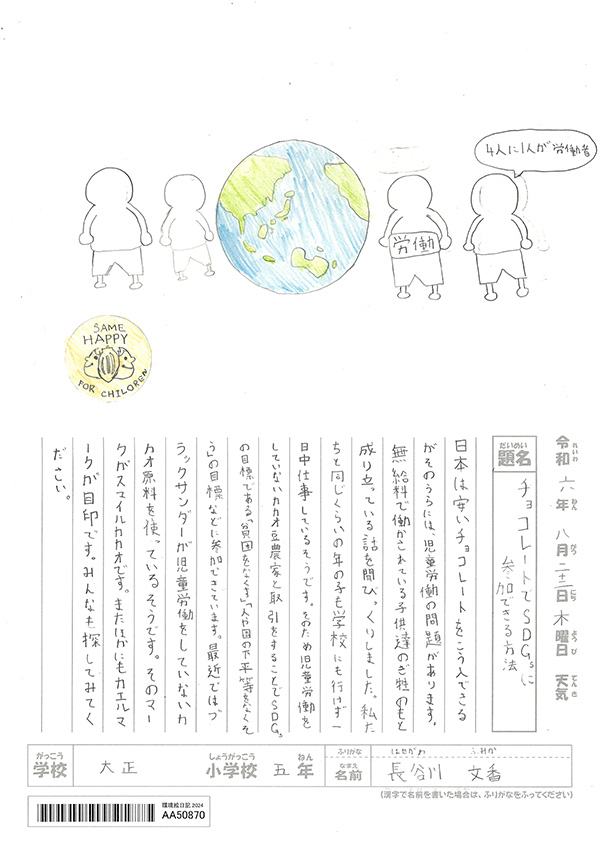 4人に1人が労働者
労働
SAME
HAPPY
FOR CHILDREN
れいわ ねん がつ にち よう び てん き
令和 六年 八月 二十二日 木曜日 天気
だいめい
題名 チョコレートでSDGsに
参加できる方法
日本は安いチョコレートをこう入できる
がそのうらには、児童労働の問題があります。
無給料で働かされている子供達のぎ牲のもと
成り立っている話を聞びっくりしました。私た
ちと同じくらいの年の子も学校にも行けず一
日中仕事しているそうです。そのため児童労働を
していないカカオ豆農家と取引をすることでSDGs
の目標である「貧困をなくす」「人や国の不平等をなくそ
う」の目標などに参加できています。最近ではブ
ラックサンダーが児童労働をしていないカ
カオ原料を使っているそうです。そのマー
クがスマイルカカオです。またほかにもカエルマ
ークが目印です。みんなも探してみてく
ださい。
がっこう しょうがっこう ねん ふりがな はせがわ ふみか
学校 大正 小学校 五年 なまえ 名前 長谷川 文香
(漢字で名前を書いた場合は、ふりがなをふってください)
環境絵日記 2024
AA50870